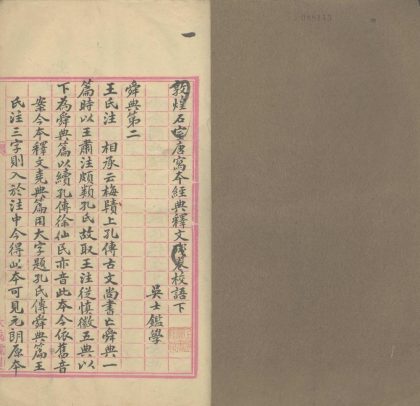 敦煌石室唐寫本經典釋文殘卷校語下
吳士鑑學
舜典第二
王氏注 相承云梅賾上孔傳古文尚書亡舜典一
篇時以王肅注頗類孔氏故取王注從慎徽五典以
下為舜典篇以續孔傳徐仙民亦音此本今依舊音
案今本釋文堯典篇用大字題孔氏傳舜典篇王
氏注三字則入於注中今得此本可見元朗原本